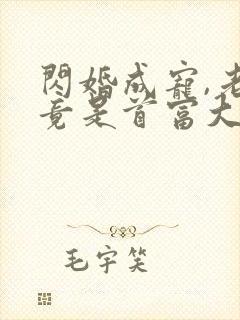 閃婚成寵,老
竟是首富大
毛宇笑